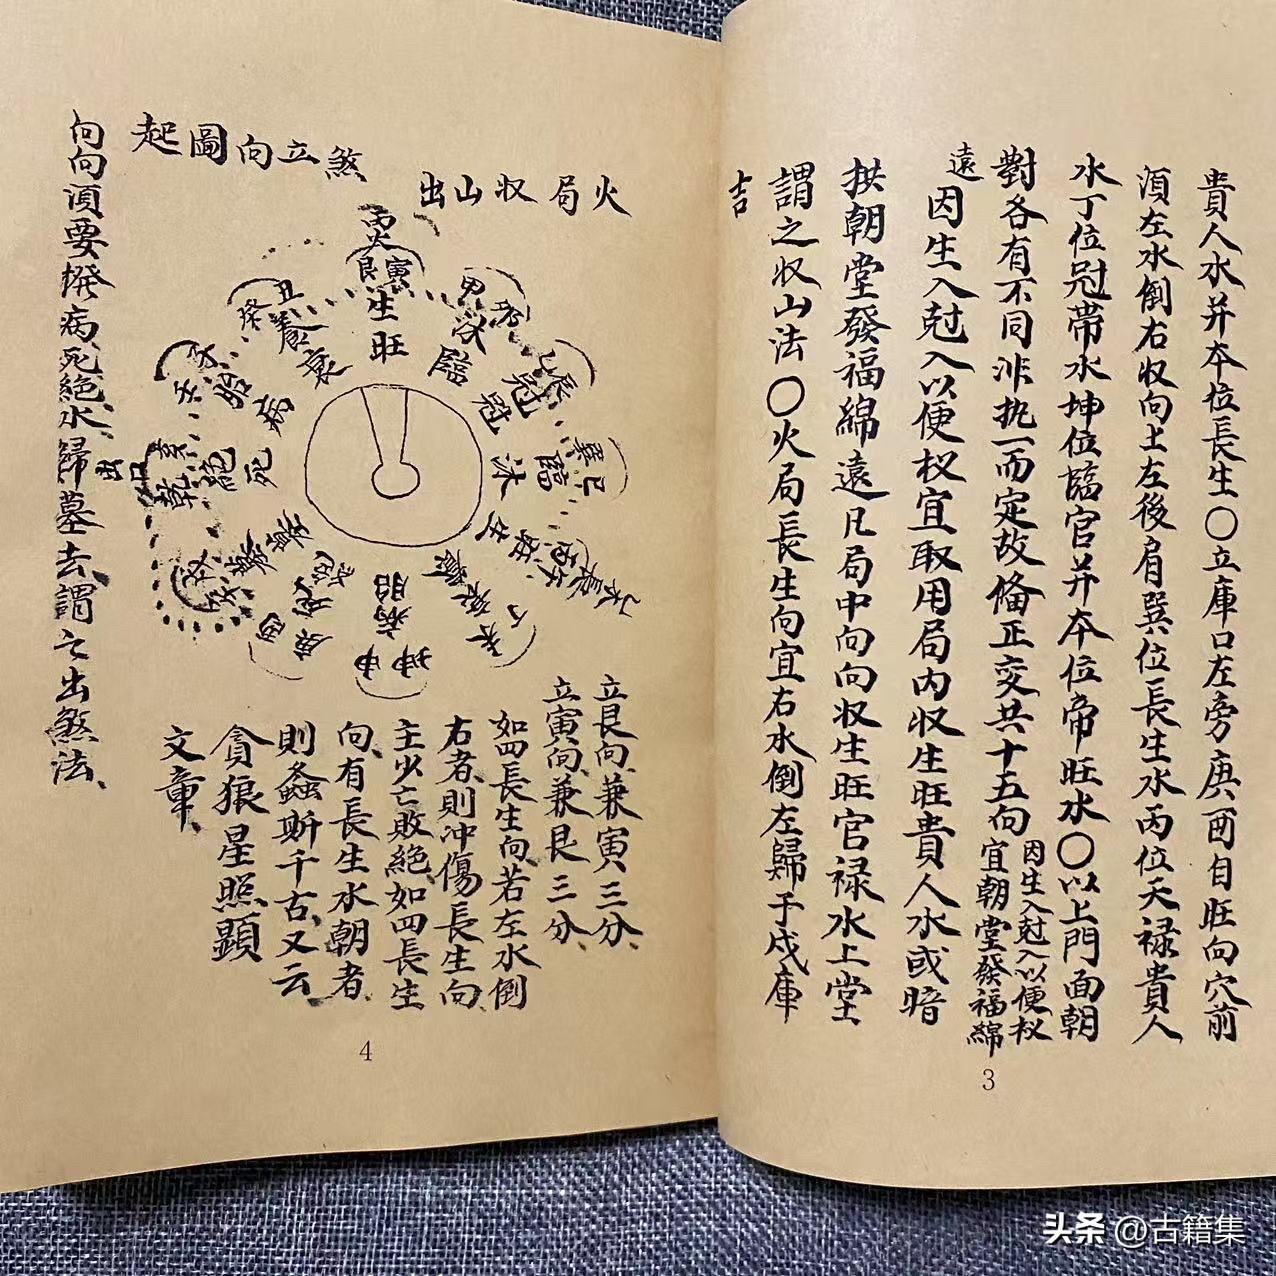 貴人水并本位長生〇立庫口左旁庚酉自旺向穴前
須左水倒右収向上左後肩巽位長生水丙位天祿貴人
水丁位冠帶水坤位臨官并本位帝旺水〇以上門面朝
對各有不同非执一而定故修正交共十五向
因生入尅入以便权
宜朝堂發福綿
遠
因生入尅入以便权宜取用局内収生旺貴人水或暗
拱朝堂發福綿遠凡局中向向収生旺官禄水上堂
謂之収山法〇火局長生向宜右水倒左歸于戌庫
吉
3
火局収山出
煞立向圖起
丙火
艮寅
生
旺
甲
沐
臨
乙辰
冠
冠
巽巳
臨
沐
生
丁未
養
坤申
病
胎
庚酉
死
絕
墓
乾亥
絕
死
壬子
胎
病
癸丑
養
衰
立艮向、兼寅三分、
立寅向、兼艮三分、
如四長生向若左水倒
右者、則冲傷長生向
主少亡敗絕如四長生
向、有長生水朝者、
則螽斯千古、又云
貪狼星照顯
文章、
向向須要撥病死絕水歸墓去謂之出煞法、
4
头条 @古籍集